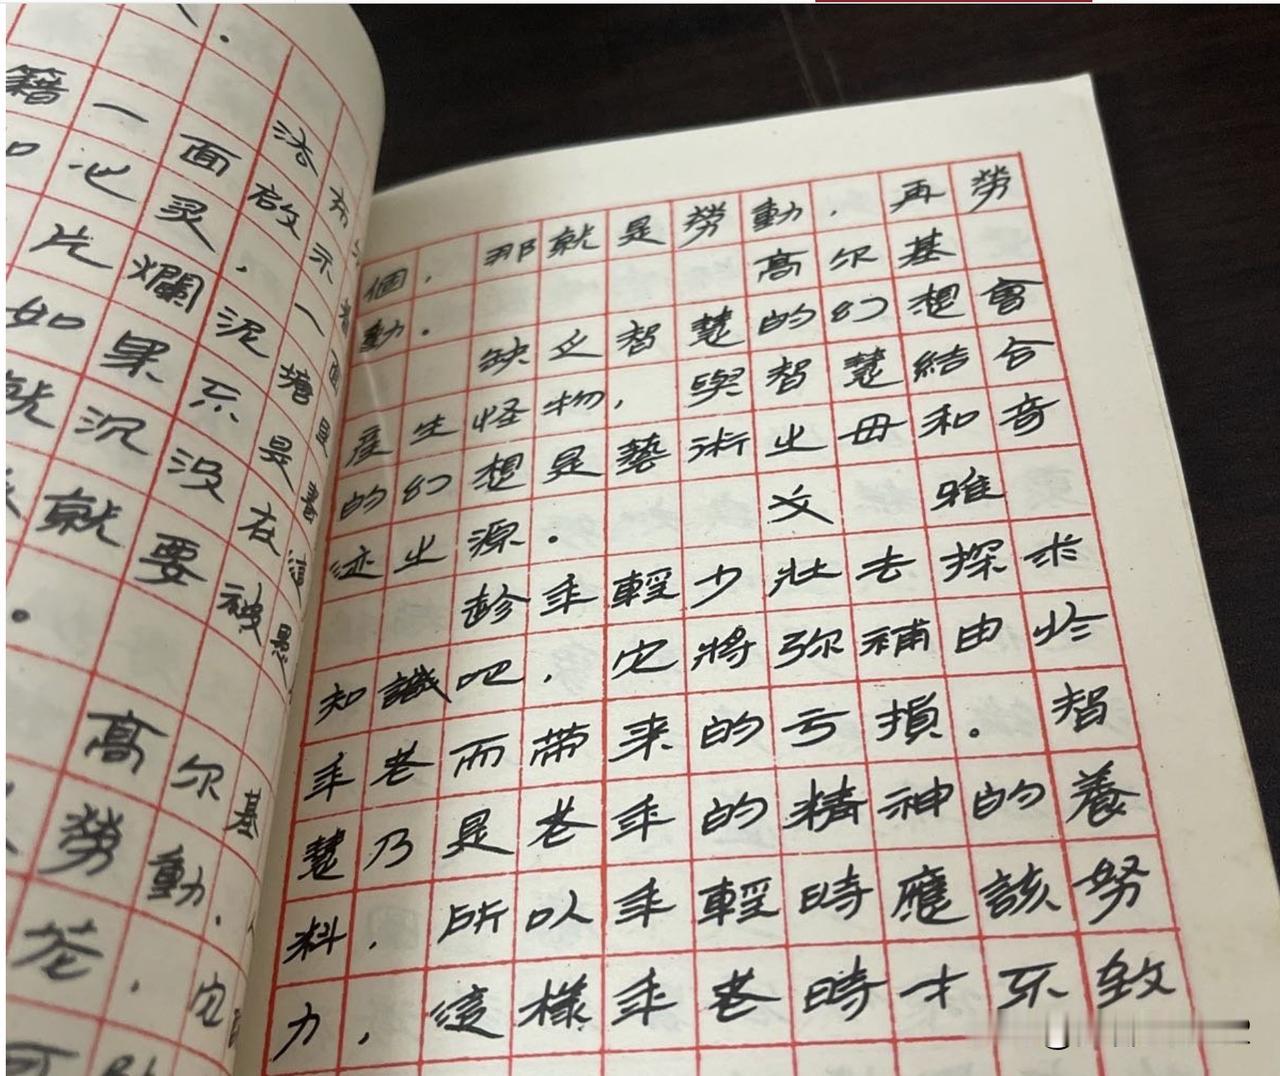 籍一面啟示
心灵，一面
片爛泥塘是
如果不
就沉没在這
就要被愚
。
高尔基
勞動，
個，那就是勞動，再勞
動。 高尔基
缺乏智慧的幻想會
產生怪物，與智慧結合
的幻想是藝術之母和奇
迹之源。 文 雅
趁年輕少壯去探求
知識吧，它將弥補由於
年老而带来的亏損。智
慧乃是老年的精神的養
料，所以年輕時應該努
力，這樣年老時才不致